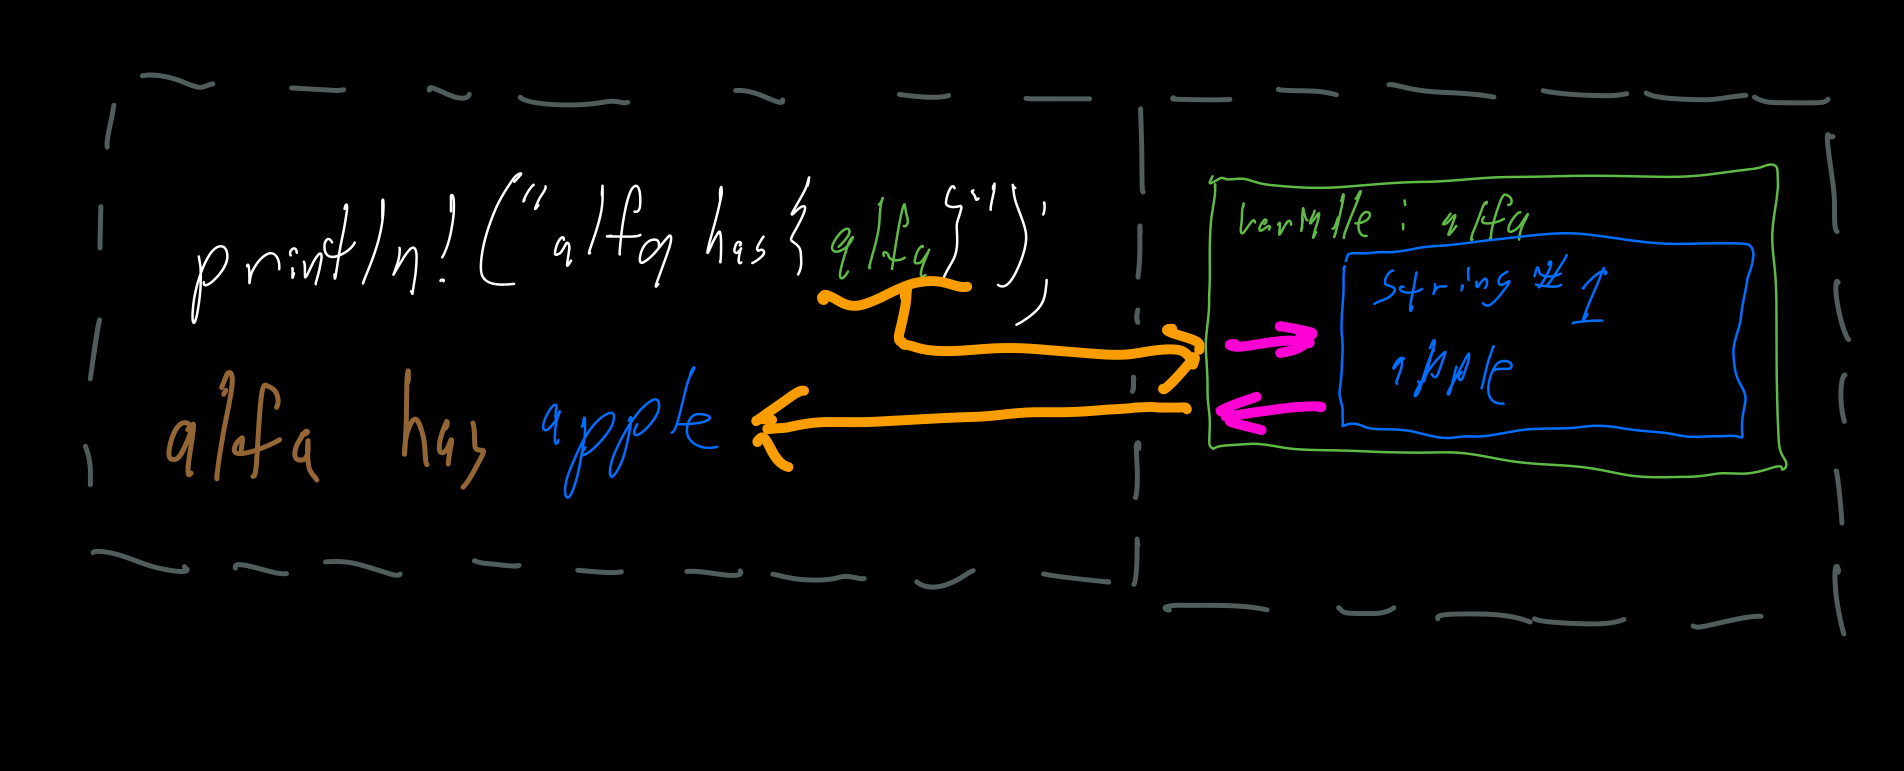 println!("alfa has {alfa}");
alfa has apple
variable : alfa
string #1
apple